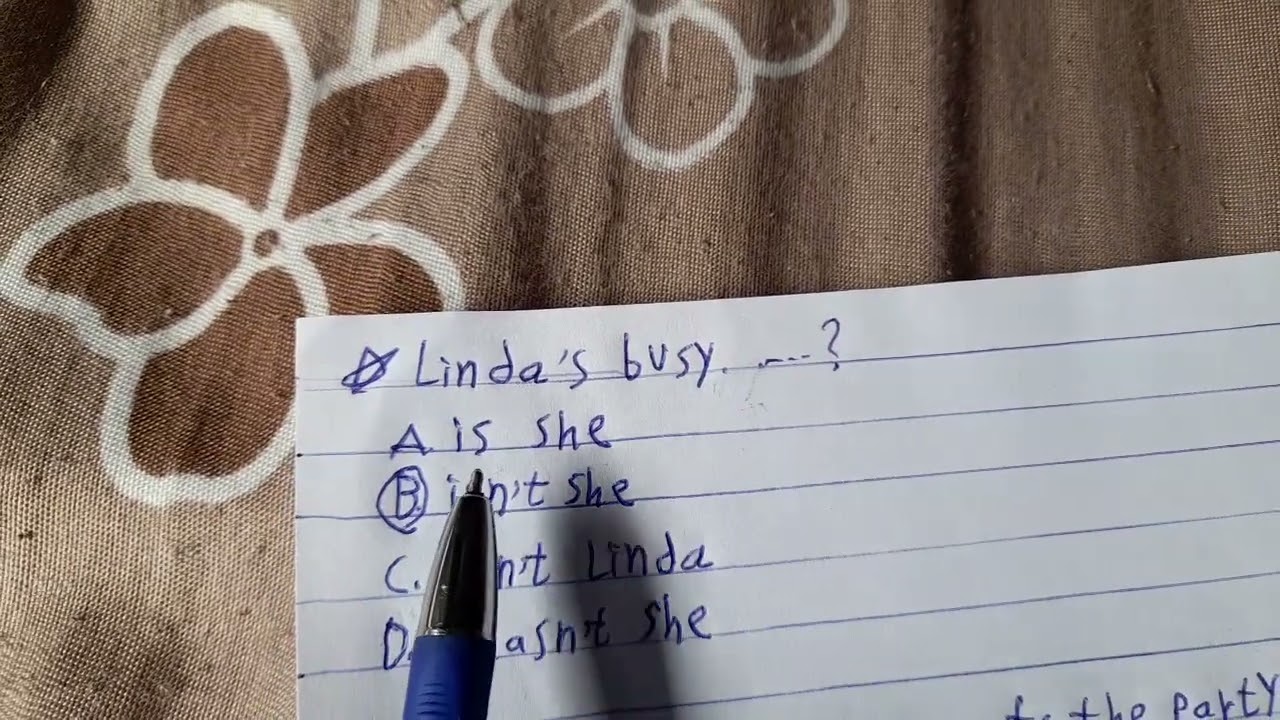 Linda's busy. ....?
A. is she
B. isn't she
C. Linda
D. she
to the Party